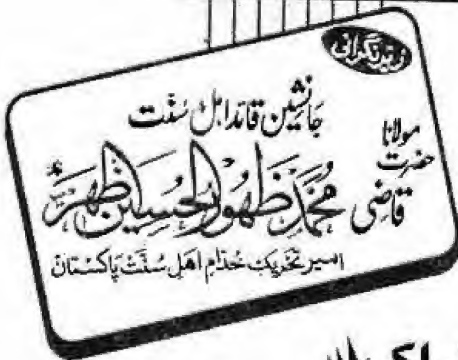 زیر نگرانی
جانشین قائد اہل سُنّت
حضرت مولانا
قاضی مُحمّد ظہور الحُسین اظہر
امیر تحریک خُدام اھل سُنّت پاکستان